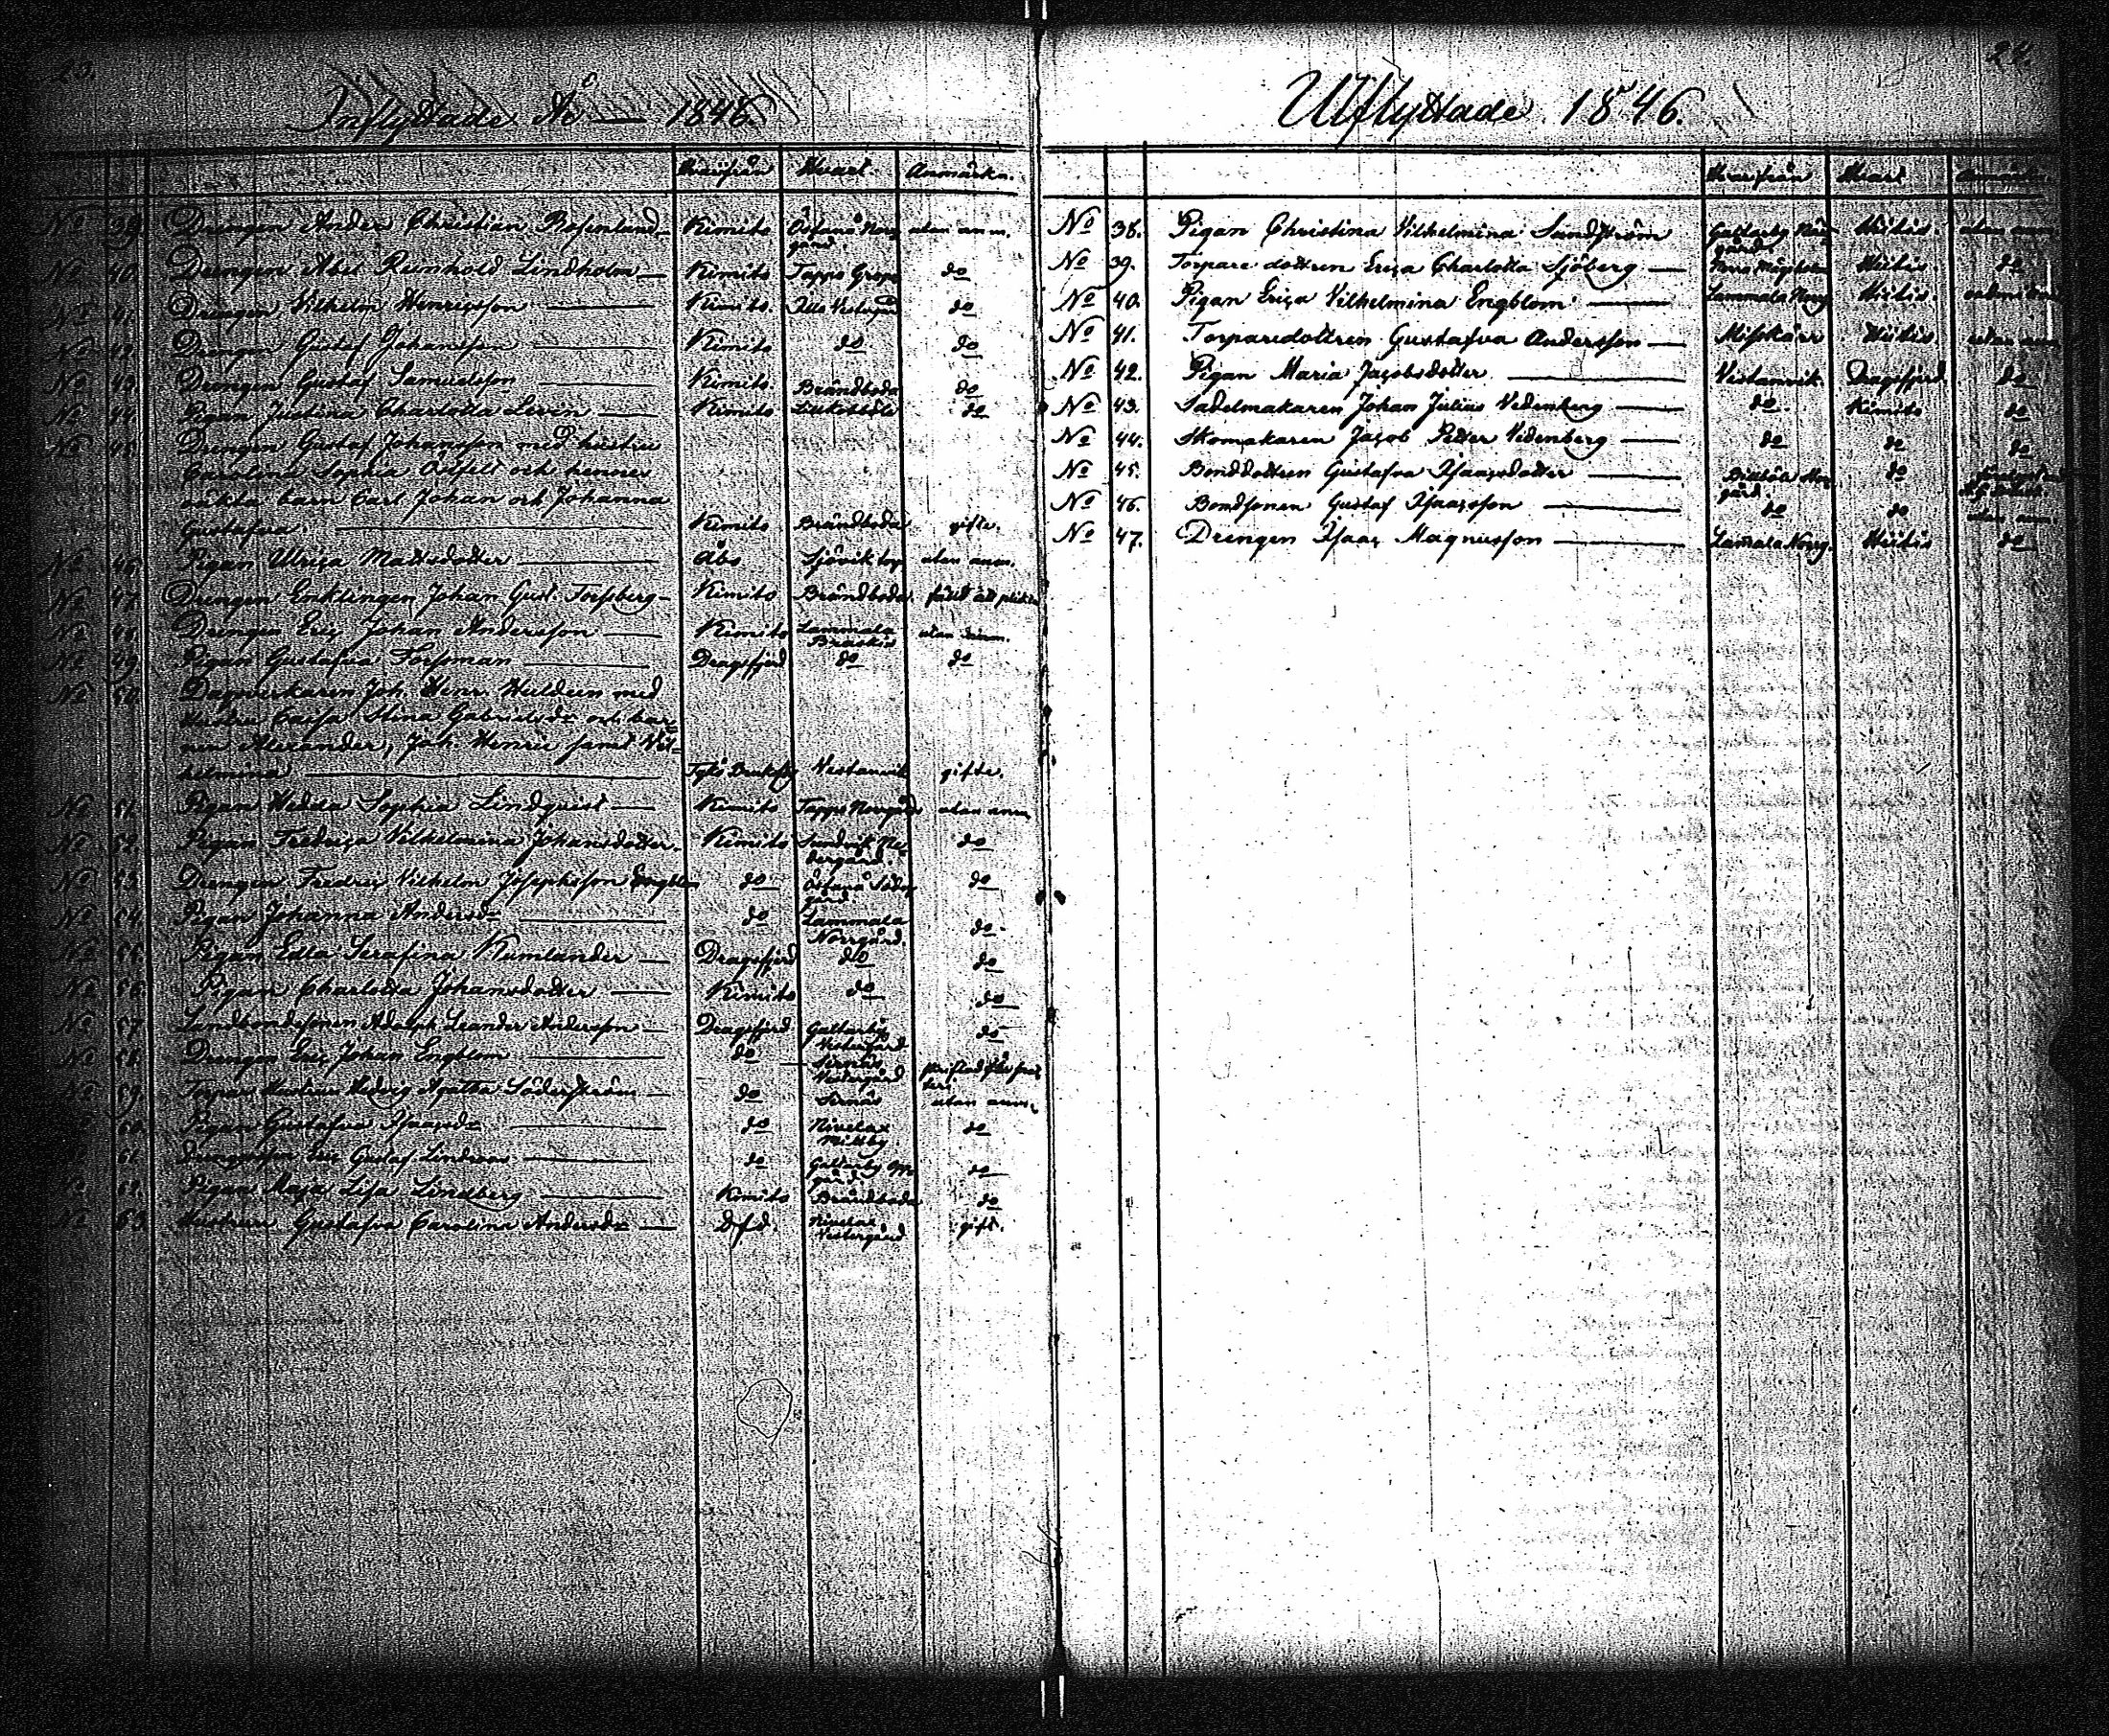 23.
Inflyttade År — 1846.
Hvarifrån Hvart. Anmärkn.
No 39. Drengen Anders Christian Rosenlund — Kimito Östanå Norr- utan anm.
gård.
No 40. Drengen Abel Reinhold Lindholm — Kimito Tappo Grops do
No 41. Drengen Vilhelm Henricsson — Kimito. Illo Vestergård do
No 42. Drengen Gustaf Johansson — Kimito do do
No 43. Drengen Gustaf Samuelsson — Kimito. Brändboda do
No 44. Pigan Justina Charlotta Levin — Kimito do
No 45. Drengen Gustaf Johansson med hustru
Carolina Sophia och hennes
oäkta barn Carl Johan och Johanna
Gustafva. — Kimito Brändboda gifte.
No 46. Pigan Ulrica Mattsdotter — Åbo Sjövik torp utan anm.
No 47. Drengen Enklingen Johan Gust. Forssberg — Kimito Brändboda
No 48. Drengen Eric Johan Andersson — Kimito Lammala utan anm.
No 49. Pigan Gustafva Forssman — Dragsfjerd do do
No 50. Dagsverkaren Joh. Henr. Huldeen med
Hustru Caisa Stina Gabrielsdr och bar-
nen Alexander, Joh. Henric samt Vil-
helmina — Vestanvik gifte.
No 51. Pigan Hedda Sophia Lindquist — Kimito Tappo Norrgård utan anm.
No 52. Pigan Fredrica Vilhelmina Johansdotter. Kimito Sundvik Ne-
dergård. do
No 53. Drengen Fredric Vilhelm Josephsson Engblom do Östanå Söder-
gård. do
No 54. Pigan Johanna Andersdr — do Lammala
Norrgård. do
No 55. Pigan Edla Serafina Kumlander — Dragsfjerd do do
No 56. Pigan Charlotta Johansdotter — Kimito do do
No 57. Landbondesonen Adolph Leander Andersson — Dragsfjerd Galtarby
Vestergård do
No 58. Drengen Eric Johan Engblom — do Sirnäs
Vestergård
No 59. Torpar Hustrun Hedvig Agatha Söderström — do Sirnäs utan anm.
60. Pigan Gustafva Isaacsdr — do Nivelax
Millby do
61. Eric Gustaf Lindroos — do Galtarby
gård do
No 62. Pigan Maja Lisa Lindberg — Kimito Brändboda do
No 63. Hustrun Gustafva Carolina Andersdr — Dfd. Nivelax
Vestergård gift.
24.
Utflyttade 1846.
Hvarifrån Hvart Anmärkn.
No 38. Pigan Christina Vilhelmina Sandström Galtarby
gård Hiitis. utan anm.
No 39. Torpare dottren Erica Charlotta Sjöberg — Hiitis. do
No 40. Pigan Erica Vilhelmina Engblom — Lammala Norrg Hiitis.
No 41. Torparedottren Gustafva Andersson — Misskärr Hiitis utan anm.
No 42. Pigan Maria Jacobsdotter — Vestanvik Dragsfjerd do
No 43. Sadelmakaren Johan Julius Vedenberg — do Kimito do
No 44. Skomakaren Jacob Petter Vedenberg — do do do
No 45. Bonddottren Gustafva Isaacsdotter — Norr-
gård. do
No 46. Bondsonen Gustaf Isaacsson — do do utan anm.
No 47. Drengen Isaac Magnusson — Lammala Norrg. Hiitis do